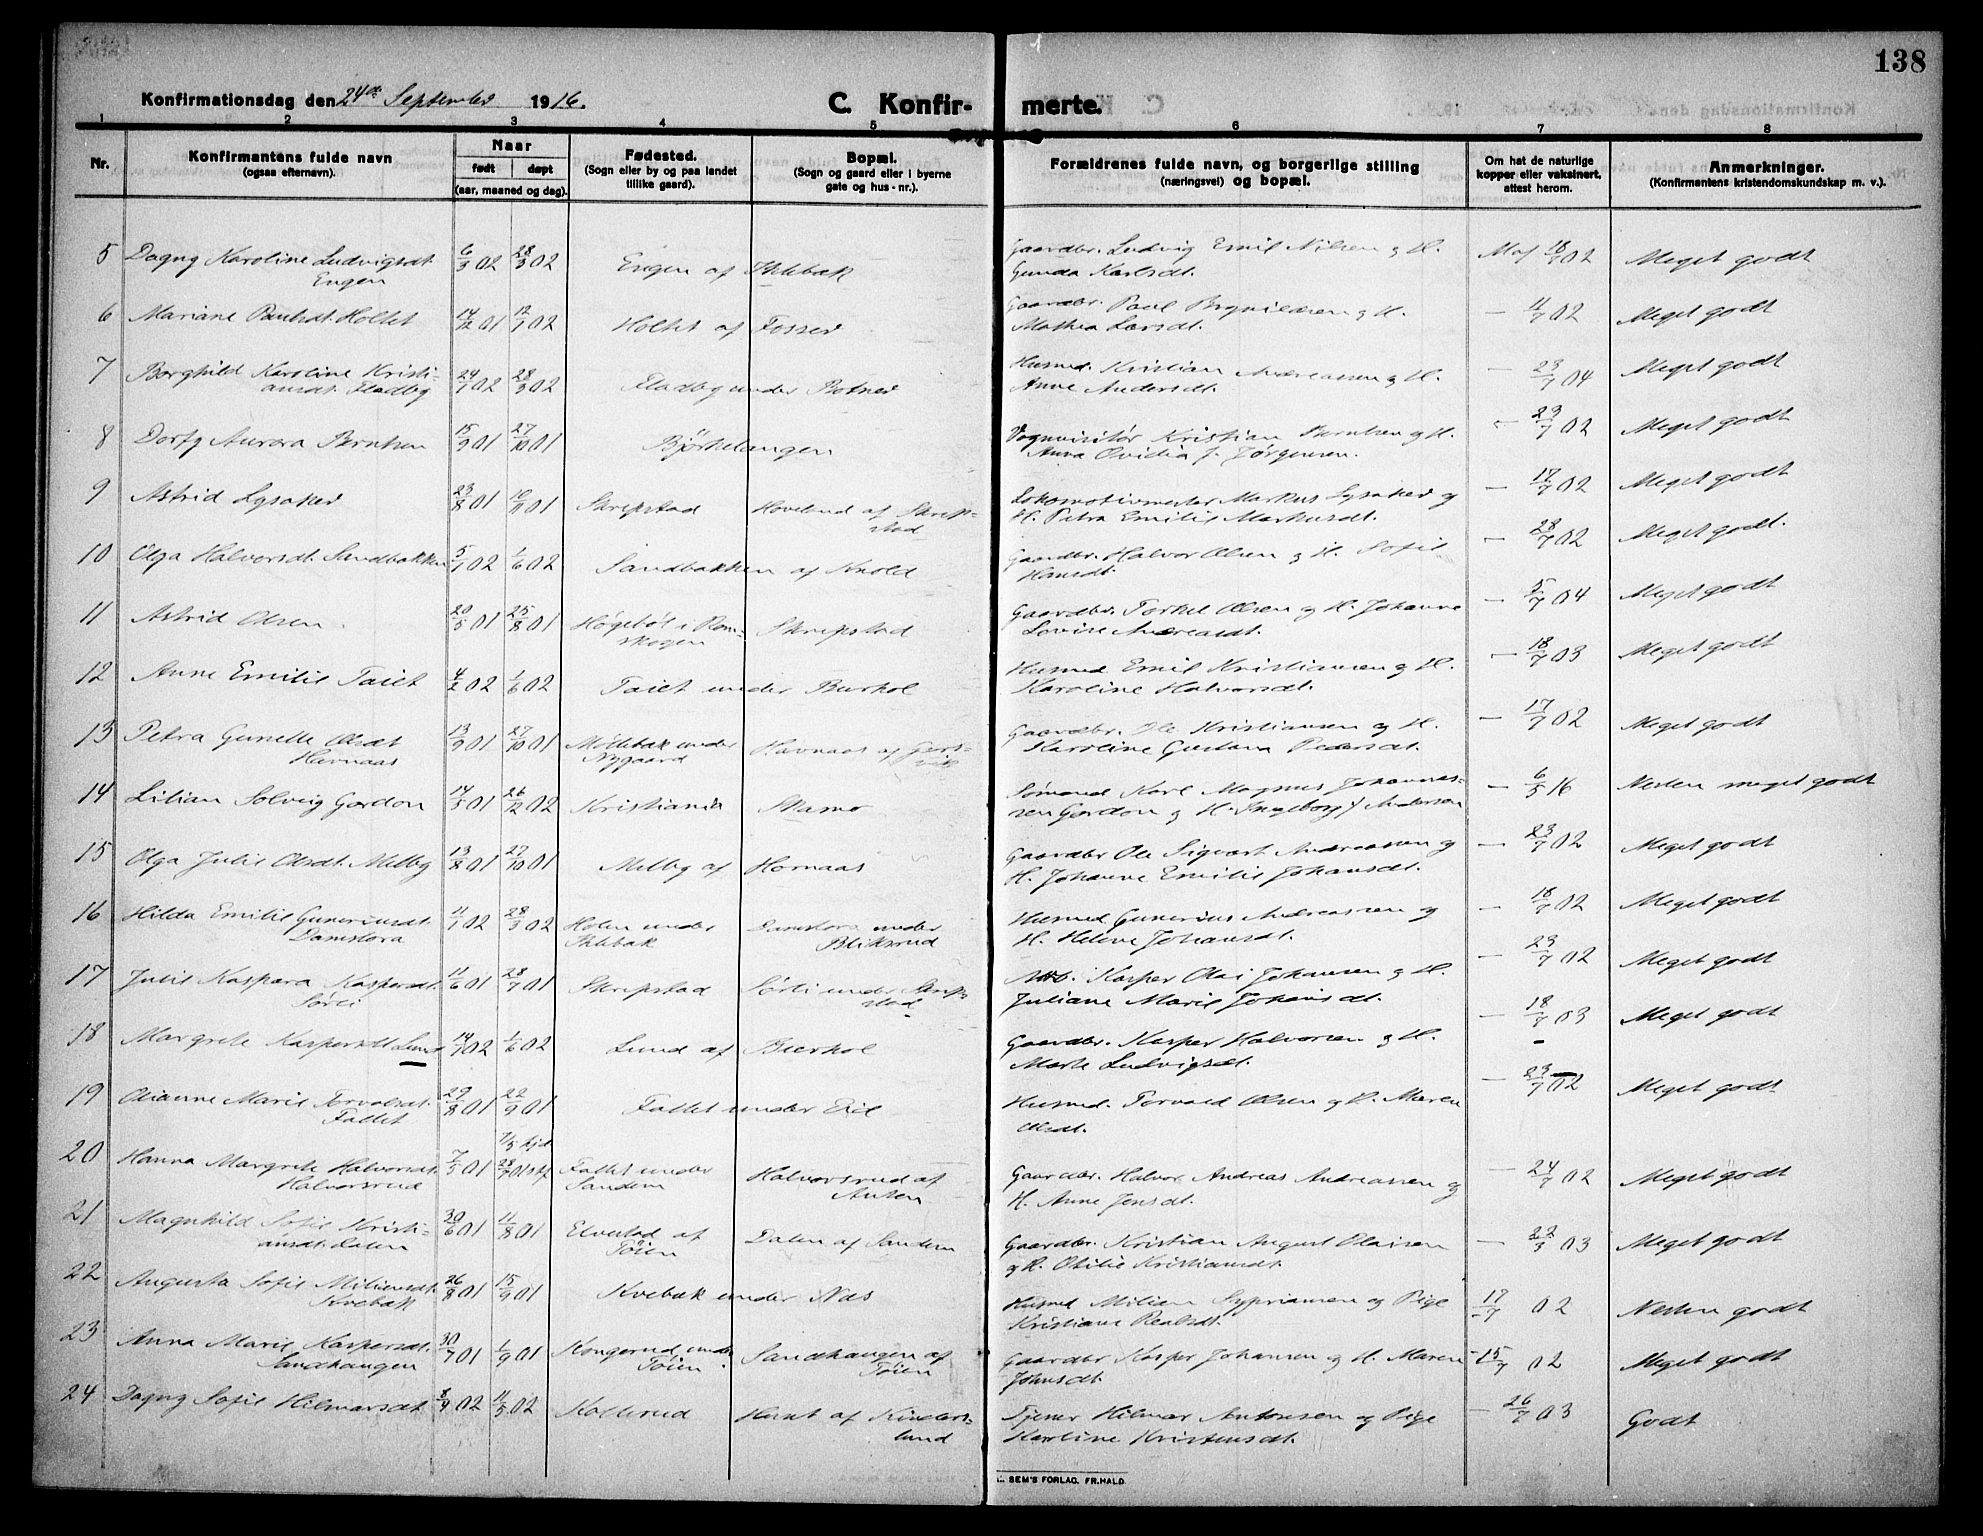 138
Konfirmationsdag den 24de September 1916.
C. Konfirmerte.
1 2 3 4 5 6 7 8
Nr.
Konfirmantens fulde navn
(ogsaa efternavn).
Naar
født døpt
(aar, maaned og dag).
Fødested.
(Sogn eller by og paa landet
tillike gaard).
Bopæl.
(Sogn og gaard eller i byerne
gate og hus-nr.).
Forældrenes fulde navn, og borgerlige stilling
(næringsvei) og bopæl.
Om hat de naturlige
kopper eller vaksinert,
attest herom.
Anmerkninger.
(Konfirmantens kristendomskundskap m. v.).
5 Dagny Karoline Ludvigsdt. 6/3 02 28/3 02 Engen af Ihlebæk Gaardbr. Ludvig Emil Nilsen og H. 18/7 02 Meget godt
Engen Gunda Karlsdt.
6 Mariane Paulsdt. Holtet 14/12 01 12/1 02 Holtet af Fosser Gaardbr. Paul Brynildsen og H. — 11/7 02 Meget godt
Mathea Larsdt.
7 Borghild Karoline Kristi- 24/1 02 28/3 02 Fladby under Botner Husmd. Kristian Andreassen og H. — 23/7 04 Meget godt
ansdt. Fladby Anne Andersdt.
8 Dorfy Aurora Berntsen 15/9 01 27/10 01 Bjørkelangen Vognvisitør Kristian Berntsen og H. 23/7 02 Meget godt
Anna Ovidia J. Jørgensen.
9 Astrid Lysaker 23/8 01 10/11 01 Skrepstad Hovelund af Skrep- Lokomotivmester Markus Lysaker og — 17/7 02 Meget godt
stad H. Petra Emilie Markusdt.
10 Olga Halvorsdt. Sandbakken 5/1 02 1/6 02 Sandbakken af Knold Gaardbr. Halvor Olsen og H. Sofie — 28/7 02 Meget godt.
Hansdt.
11 Astrid Olsen. 20/5 01 25/8 01 Høgebøl i Rom- Skrepstad Gaardbr. Torkel Olsen og H. Johanne — 5/7 04 Meget godt
skogen Lovise Andreasdt.
12 Anne Emilie Taiet 4/2 02 1/6 02 Taiet under Burhol Husmd Emil Kristiansen og H. — 18/7 03 Meget godt
Karoline Halvorsdt.
13 Petra Gunelle Olsdt 13/9 01 27/10 01 Møllebæk under Havnaas af Gers- Gaardbr. Ole Kristiansen og H. — 17/7 02 Meget godt
Havnaas Nygaard vik Karoline Gustava Pedersdt.
14 Lilian Solveig Gordon 14/5 01 26/12 02 Kristiania Stamo Sømand Karl Magnus Johannes- — 6/5 16 Nesten meget godt
sen Gordon og H. Ingeborg J Andersen
15 Olga Julie Olsdt. Melby 13/8 01 27/10 01 Melby af Hornaas Gaardbr Ole Sigvart Andreassen og — 23/7 02 Meget godt
H. Johanne Emilie Johansdt.
16 Hilda Emilie Guneriusdt. 11/1 02 28/3 02 Holen under Damstora under Husmd. Gunerius Andreassen og — 18/7 02 Meget godt
Damstora Ihlebæk Bliksrud H. Helene Johansdt.
17 Julie Kaspara Kaspersdt. 11/6 01 28/7 01 Skrepstad Sørli under Skrep- Kasper Olai Johansen og H. — 23/7 02 Meget godt
Sørli stad Juliane Marie Johansdt.
18 Margrete Kaspersdt Lund 14/1 02 1/6 02 Lund af Bierhol Gaardbr. Kasper Halvorsen og H. — 18/7 03 Meget godt
Marte Ludvigsdt.
19 Olianne Marie Torvalsdt. 29/8 01 22/9 01 Fallet under Eid Husmd. Torvald Olsen og H. Maren — 23/7 02 Meget godt
Fallet Olsdt.
20 Hanna Margrete Halvorsdt. 7/5 01 7/5 hjd. 28/7 01 stf. Fallet under Halvorsrud af Gaardbr. Halvor Andreas Andreassen og — 24/7 02 Meget godt
Halvorsrud Sandem Aulen H. Anne Jensdt.
21 Magnhild Sofie Kristi- 30/6 01 11/8 01 Elvestad af Dalen af Sandem Gaardbr. Kristian August Olaisen — 22/3 03 Meget godt
ansdt. Dalen Tøien og H. Otilie Kristiansdt.
22 Augusta Sofie Miliansdt. 26/8 01 15/9 01 Kvebæk under Nas Husmd Milian Sypriansen og Pige 17/7 02 Nesten godt
Kvebæk Kristiane
23 Anna Marie Kaspersdt. 30/7 01 1/9 01 Kongerud under Sandhaugen af Gaardbr Kasper Johansen og H. Maren 15/7 02 Meget godt
Sandhaugen Tøien Tøien Johnsdt.
24 Dagny Sofie Hilmarsdt 8/4 02 11/5 02 Kollerud Huset af Kinders- Tjener Hilmar Antonsen og Pige — 26/7 03 Godt
lund Karoline Kristensdt.
SEM'S FORLAG. FR.HALD